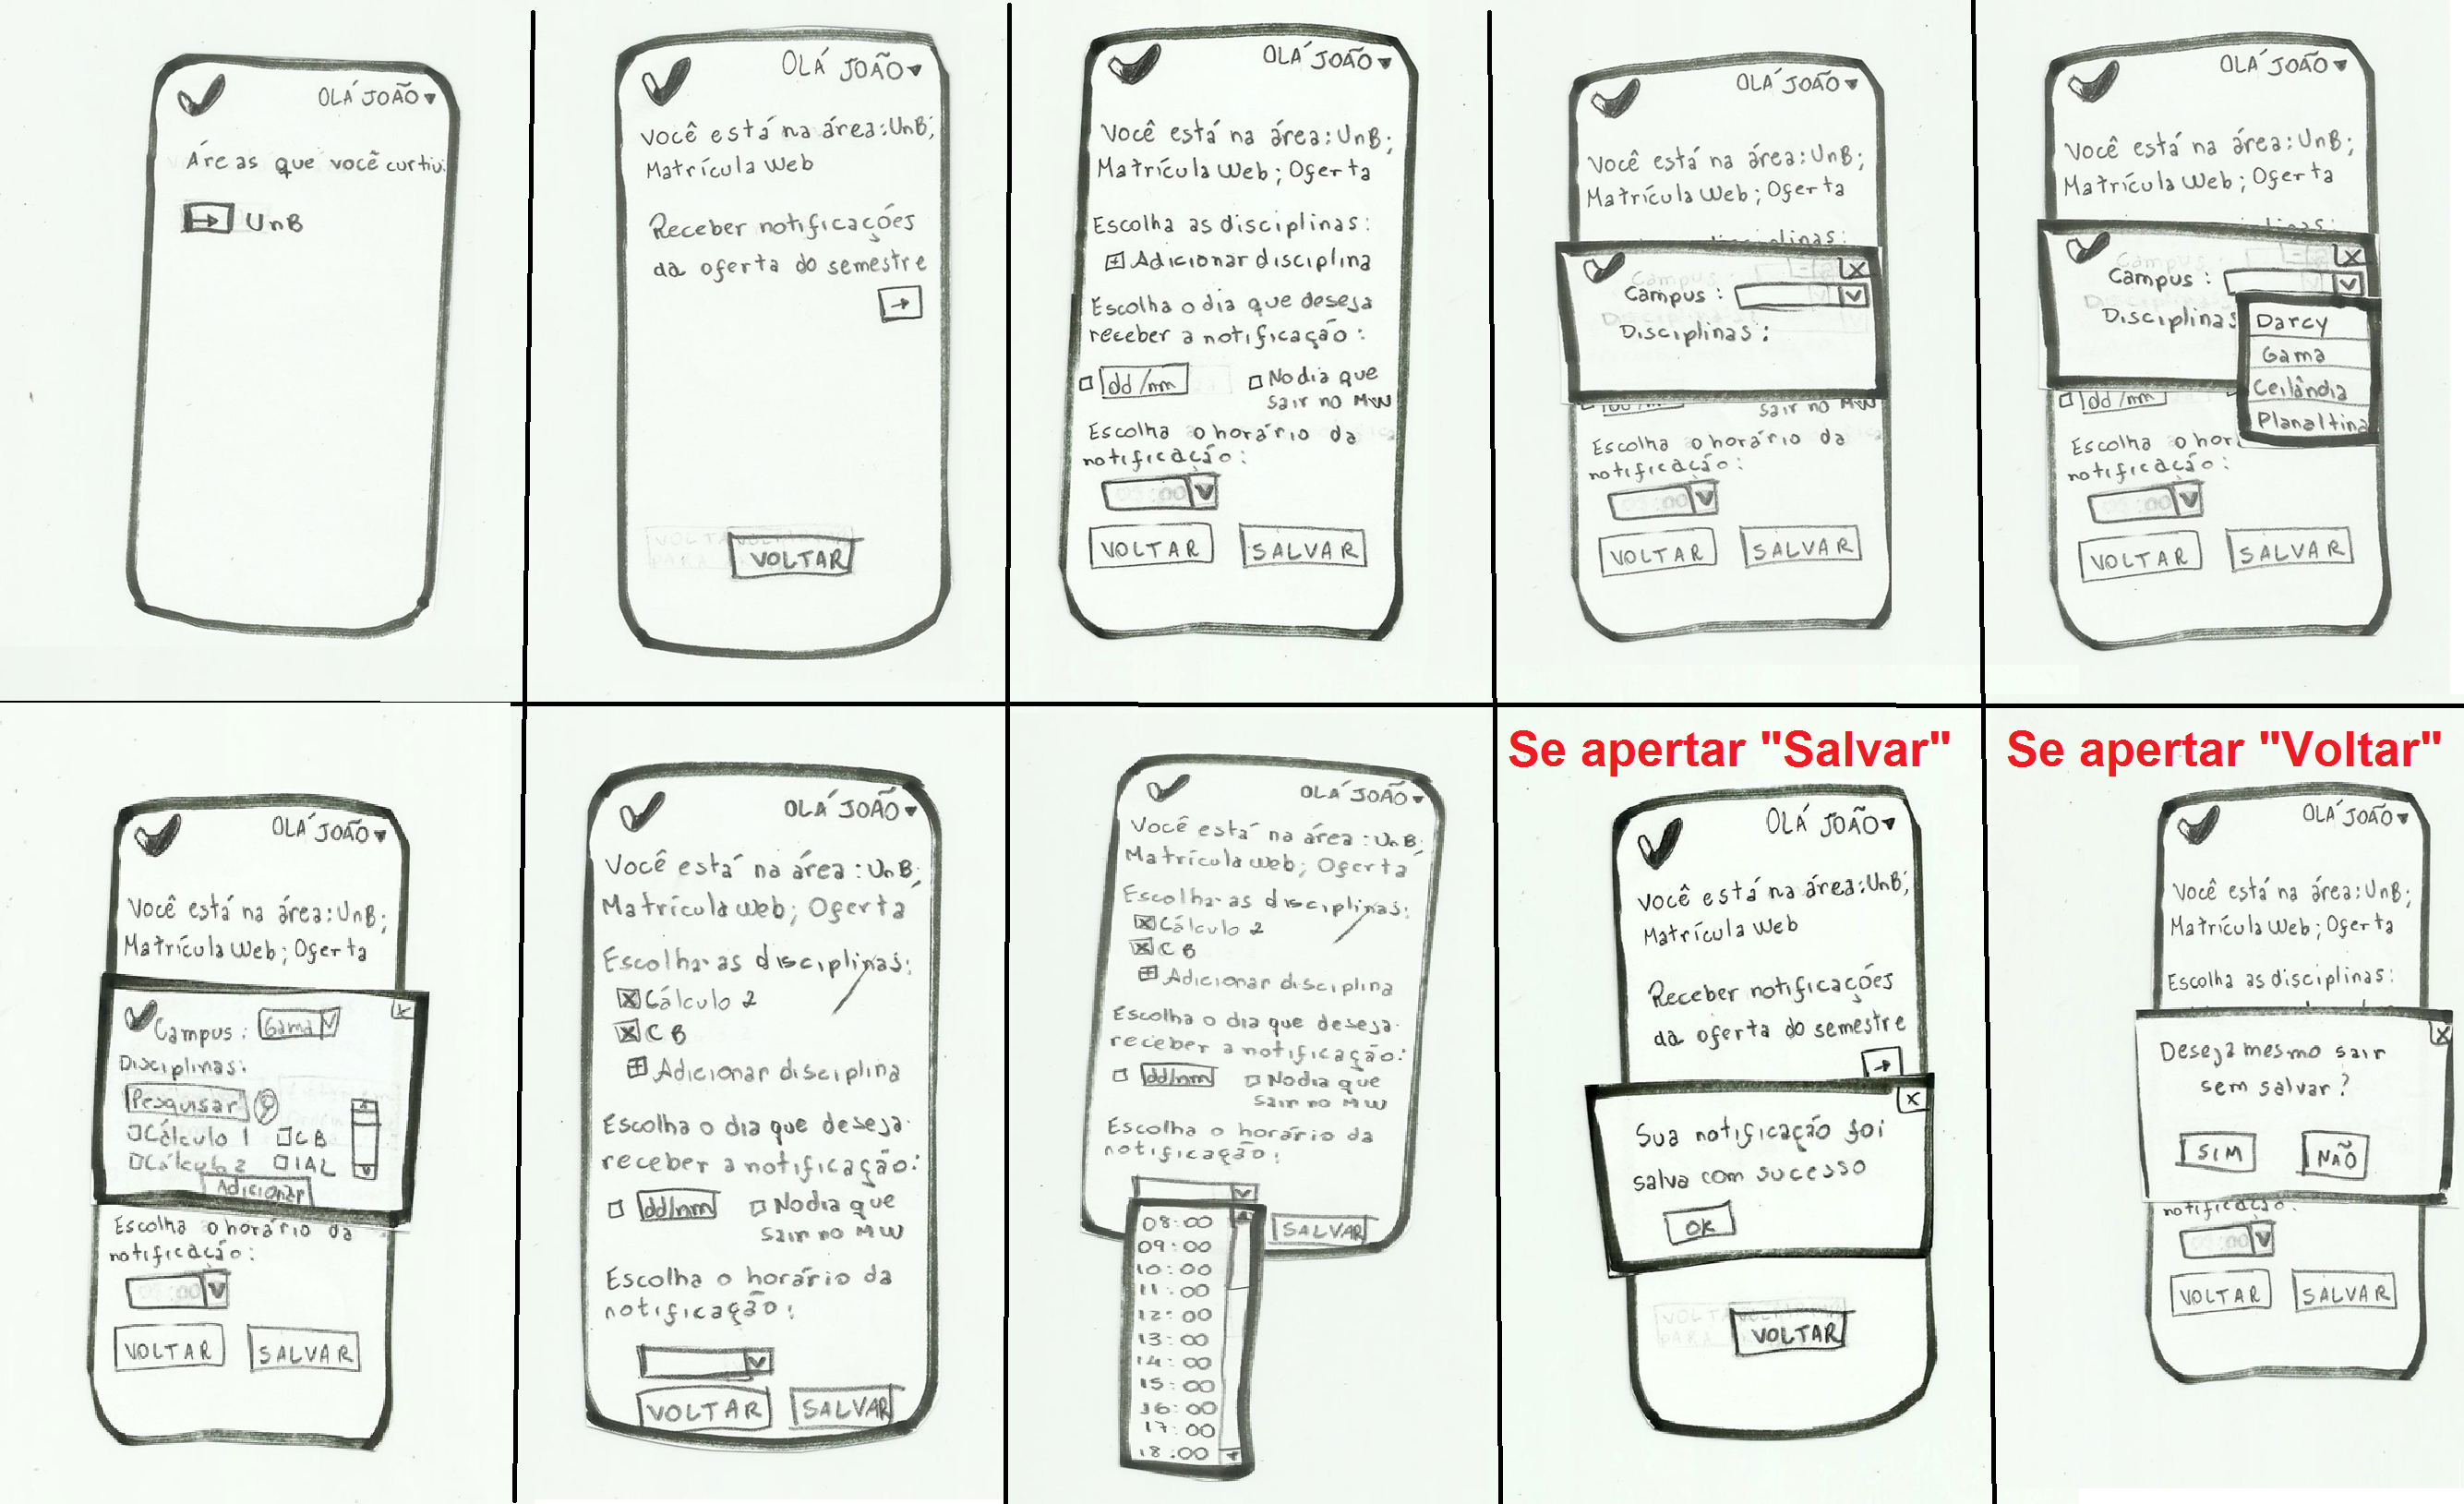 OLÁ JOÃO
Áreas que você curtiu:
UnB
OLÁ JOÃO
Você está na área: UnB;
Matrícula Web
Receber notificações
da oferta do semestre
VOLTAR
OLÁ JOÃO
Você está na área: UnB;
Matrícula Web; Oferta
Escolha as disciplinas:
Adicionar disciplina
Escolha o dia que deseja
receber a notificação:
dd/mm
No dia que
sair no MW
Escolha o horário da
notificação:
VOLTAR SALVAR
OLÁ JOÃO
Você está na área: UnB;
Matrícula Web; Oferta
X
Campus:
Disciplinas:
sair no MW
Escolha o horário da
notificação:
VOLTAR SALVAR
OLÁ JOÃO
Você está na área: UnB;
Matrícula Web; Oferta
X
Campus:
Disciplinas
Darcy
Gama
Ceilândia
Planaltina
dd/mm
Escolha o hor
notificação:
VOLTAR SALVAR
OLÁ JOÃO
Você está na área: UnB;
Matrícula Web; Oferta
X
Campus: Gama
Disciplinas:
Pesquisar
Cálculo 1 CB
Cálculo 2 IAL
Adicionar
Escolha o horário da
notificação:
VOLTAR SALVAR
OLÁ JOÃO
Você está na área: UnB;
Matrícula Web; Oferta
Escolha as disciplinas:
Cálculo 2
CB
Adicionar disciplina
Escolha o dia que deseja
receber a notificação:
dd/mm
No dia que
sair no MW
Escolha o horário da
notificação:
VOLTAR SALVAR
OLÁ JOÃO
Você está na área: UnB;
Matrícula Web; Oferta
Escolha as disciplinas:
Cálculo 2
CB
Adicionar disciplina
Escolha o dia que deseja
receber a notificação:
dd/mm
No dia que
sair no MW
Escolha o horário da
notificação:
08:00
SALVAR
09:00
10:00
11:00
12:00
13:00
14:00
15:00
16:00
17:00
18:00
Se apertar "Salvar"
OLÁ JOÃO
Você está na área: UnB;
Matrícula Web
Receber notificações
da oferta do semestre
X
Sua notificação foi
salva com sucesso
OK
VOLTAR
Se apertar "Voltar"
OLÁ JOÃO
Você está na área: UnB;
Matrícula Web; Oferta
Escolha as disciplinas:
X
Deseja mesmo sair
sem salvar?
SIM NÃO
notificação:
VOLTAR SALVAR